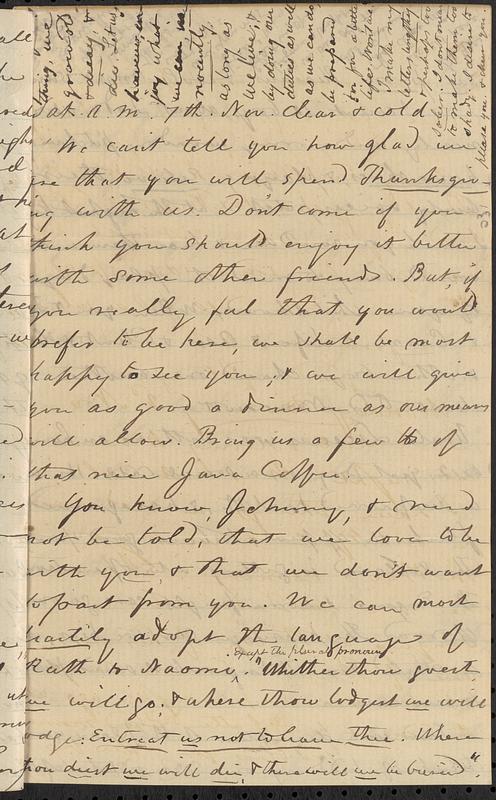 Sat. A.M. 7th. Nov. Clear & cold.
We can't tell you how glad we
are that you will spend Thanksgiv-
ing with us. Don't come if you
think you should enjoy it better
with some other friends. But, if
you really feel that you would
prefer to be here, we shall be most
happy to see you; & we will give
you as good a dinner as our means
will allow. Bring us a few lb of
that nice Java Coffee.
You know, Johnny, & need
not be told, that we love to be
with you, & that we don't want
to part from you. We can most
heartily adopt the language of
Except the plural pronoun
Ruth to Naomi, "Whither thou goest
we will go; & where thou lodgest we will
lodge: Entreat us not to leave thee. Where
thou diest we will die, & there will we be buried".
thing, we
grow old
& decay, &
die. Let us
however, en-
joy what
we can in-
nocently,
as long as
we live, &
by doing our
duties as well
as we can do
be prepared
for a better
life. I dont
make my
letters lengthy
& perhaps too
sober. I dont mean
to make them too
shady. I desire to
please you, & cheer you